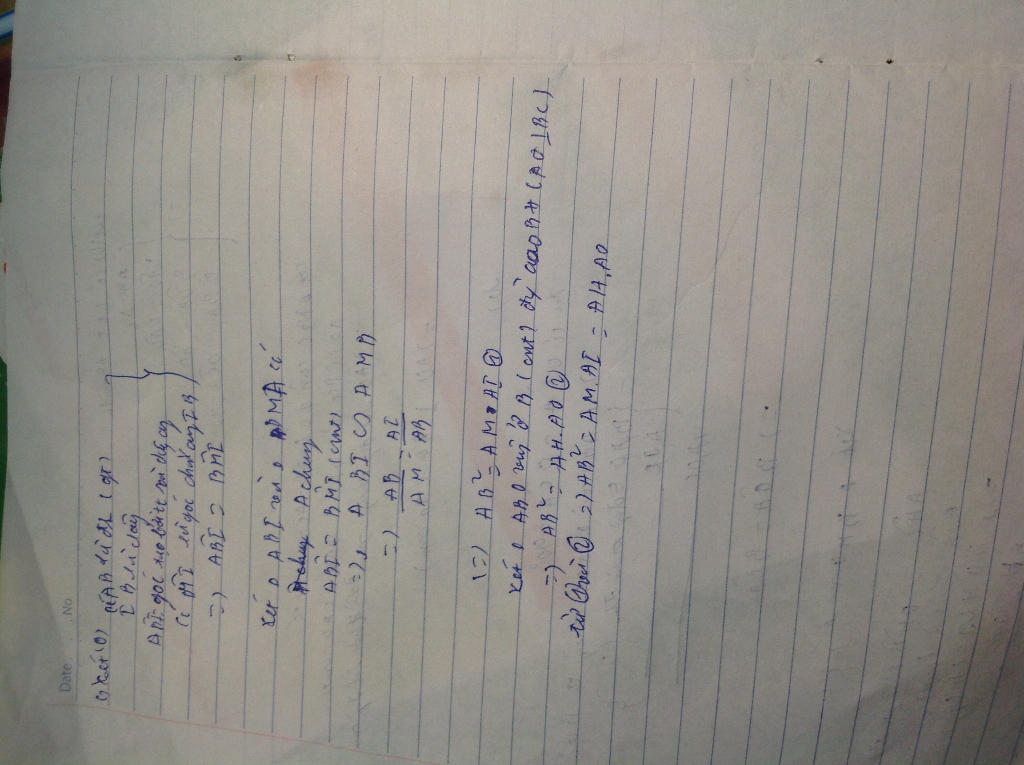 Date No
c) Xét (O) có AB là tt (gt)
I B là dây
ABI góc tạo bởi tt và dây cung
Có BMI là góc chắn cung IB
=) ABI = BMI
Xét △ ABI và △ BMA có
A chung
ABI = BMI (cmt)
=) △ ABI ∽ AMB
=) AB/AM = AI/AB
(=) AB² = AM . AI ①
Xét △ ABO vuông tại B (cmt) đg cao BH (AO ⊥ BC)
=) AB² = AH. AO ②
từ ① và ② =) AB² = AM. AI = AH. AO